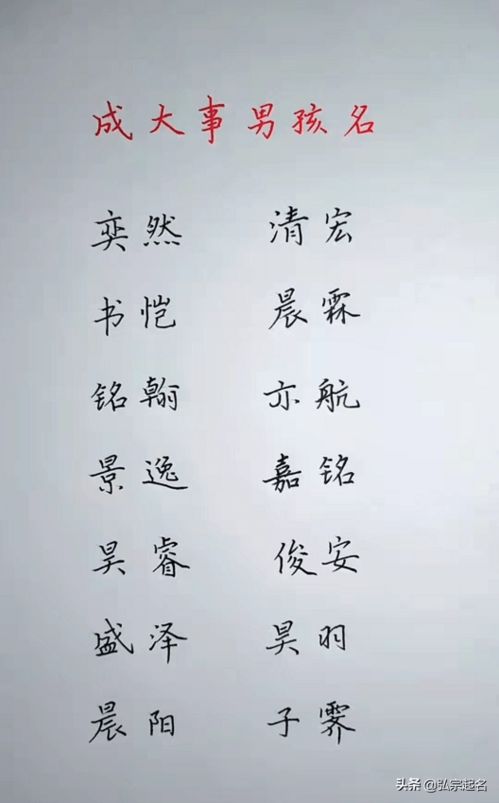 成大事男孩名
奕然 清宏
书恺 晨霖
铭翰 亦航
景逸 嘉铭
昊睿 俊安
盛泽 昊羽
晨阳 子霁
头条 @弘宗起名